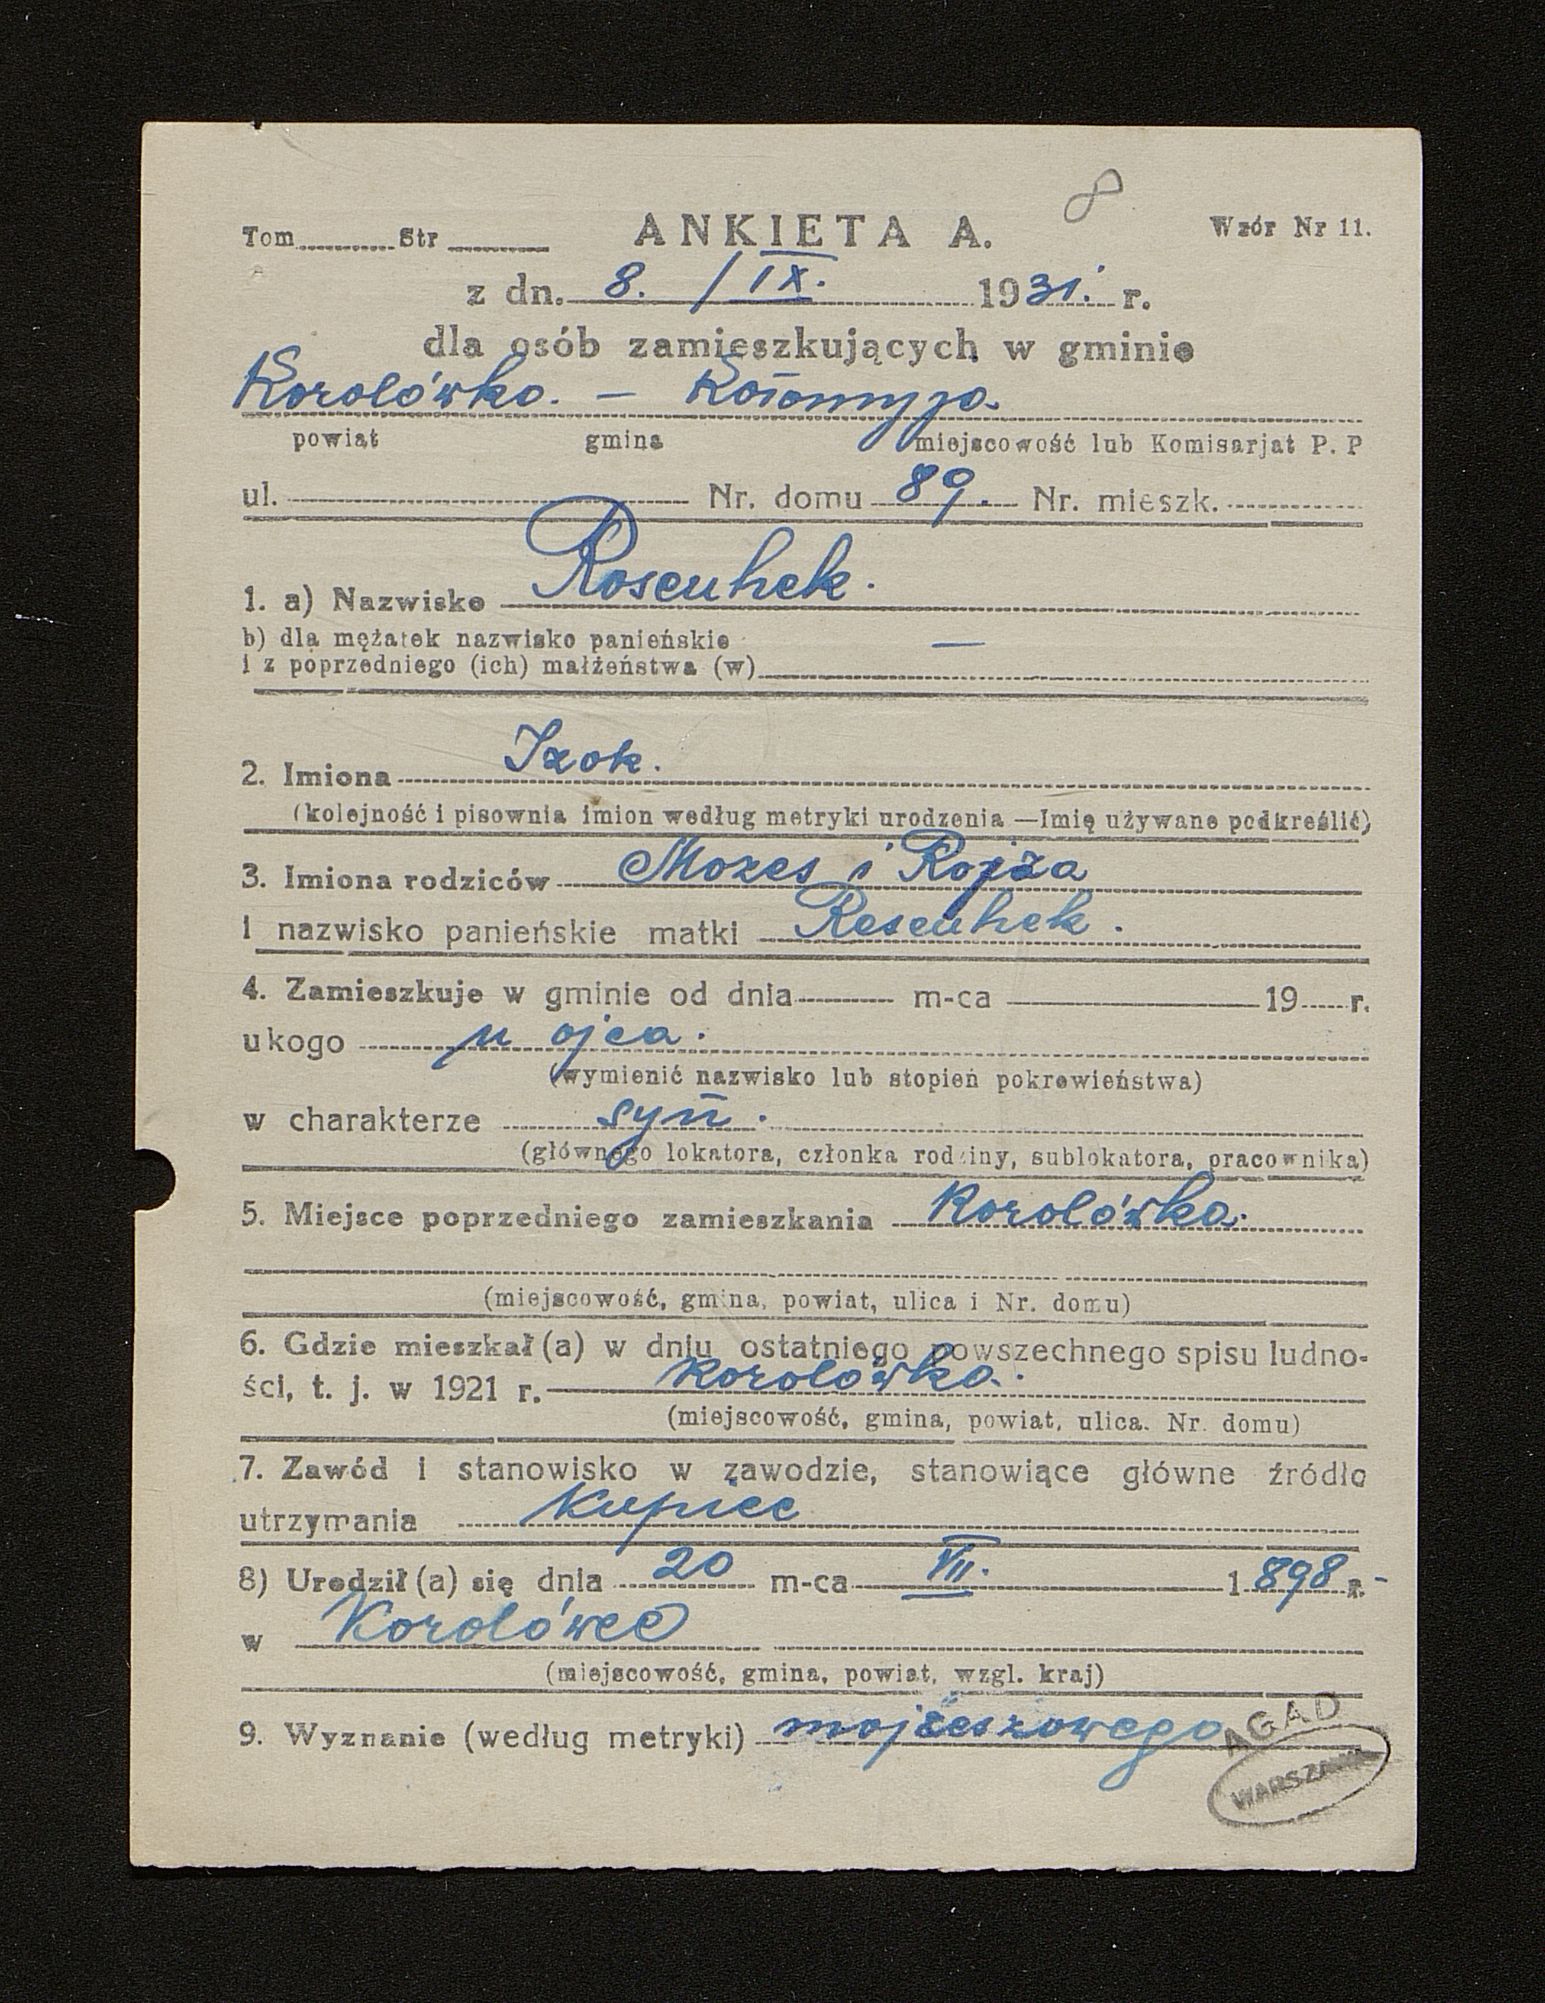 8
Tom Str ANKIETA A. Wzór Nr 11.
z dn. 8. / IX. 1931. r.
dla osób zamieszkujących w gminie
Korolówka. – Kołomyja.
powiat gmina miejscowość lub Komisarjat P. P
ul. Nr. domu 89. Nr. mieszk.
1. a) Nazwisko Rosenhek.
b) dla mężatek nazwisko panieńskie —
i z poprzedniego (ich) małżeństwa (w)
2. Imiona Izak.
(kolejność i pisownia imion według metryki urodzenia —Imię używane podkreślić)
3. Imiona rodziców Mozes i Rojza
i nazwisko panieńskie matki Rosenhek.
4. Zamieszkuje w gminie od dnia m-ca 19 r.
u kogo u ojca.
(wymienić nazwisko lub stopień pokrewieństwa)
w charakterze syn.
(głównego lokatora, członka rodziny, sublokatora, pracownika)
5. Miejsce poprzedniego zamieszkania Korolówka.
(miejscowość, gmina, powiat, ulica i Nr. domu)
6. Gdzie mieszkał (a) w dniu ostatniego powszechnego spisu ludno-
ści, t. j. w 1921 r. Korolówka.
(miejscowość, gmina, powiat, ulica. Nr. domu)
7. Zawód i stanowisko w zawodzie, stanowiące główne źródło
utrzymania Kupiec
8) Urodził (a) się dnia 20 m-ca VII. 1 898 r. -
w Korolówce
(miejscowość, gmina, powiat, wzgl. kraj)
9. Wyznanie (według metryki) mojżeszowego
AGAD
WARSZAWA